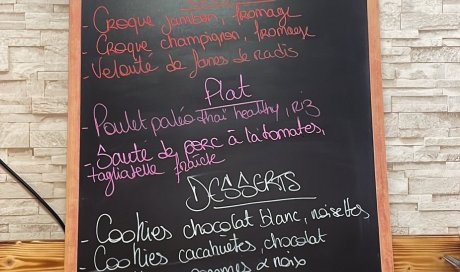 - Croque jambon, fromage
- Croque champignon, fromage
- Velouté de fanes de radis
Plat
- Poulet paléo thaï healthy, RIZ
- Sauté de PORC à la tomates,
tagliatelle fraîche
DESSERTS
- Cookies chocolat blanc, noisettes
- Cookies cacahuètes, chocolat
& noix